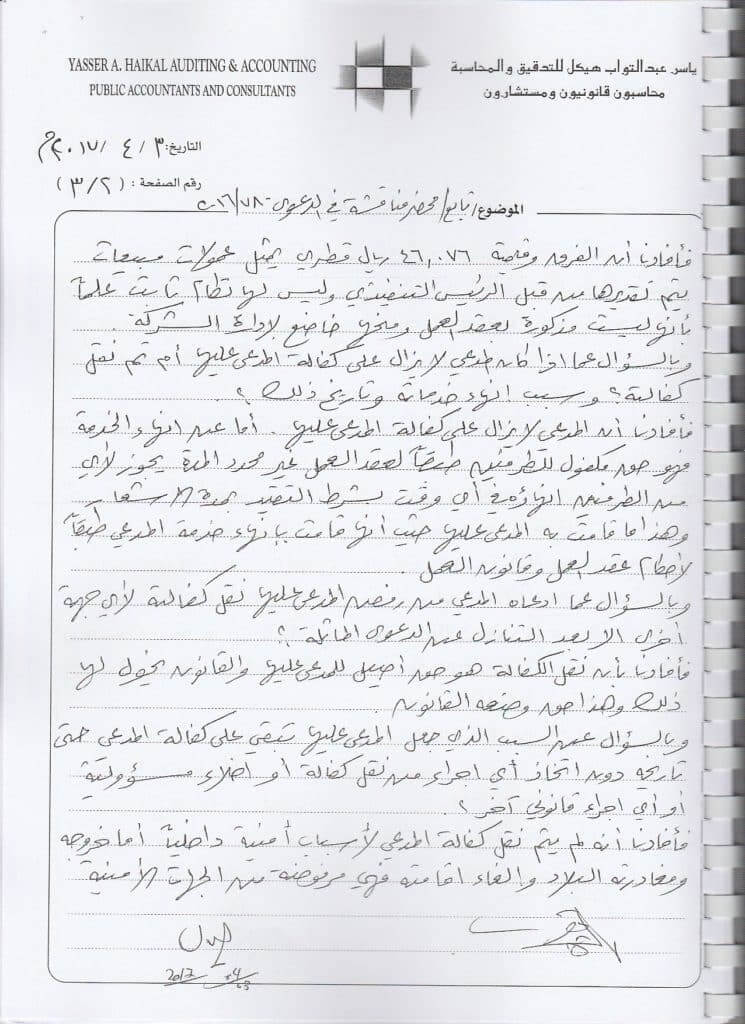 YASSER A. HAIKAL AUDITING & ACCOUNTING
PUBLIC ACCOUNTANTS AND CONSULTANTS
ياسر عبدالتواب هيكل للتدقيق والمحاسبة
محاسبون قانونيون ومستشارون
التاريخ: ٣ / ٤ / ٢٠١٧م
رقم الصفحة : (٣/٢)
الموضوع/ تابع/ محضر مناقشة في الدعوى ٧٨٠/٢٠١٦
فأفادنا أن الفرق وقيمة ٤٦,٠٧٦ ريال قطري يمثل عمولات مبيعات
يتم تقديرها من قبل الرئيس التنفيذي وليس لها نظام ثابت علماً
بأنها ليست مذكورة بعقد العمل ومنحها خاضع لإدارة الشركة .
وبالسؤال عما اذا كان المدعي لا يزال على كفالة المدعى عليها أم تم نقل
كفالته ؟ وسبب انهاء خدماته وتاريخ ذلك ؟ .
فأفادنا أن المدعي لا يزال على كفالة المدعى عليها . أما عن انهاء الخدمة
فهو حق مكفول للطرفين طبقاً لعقد العمل غير محدد المدة يجوز لأي
من الطرفين انهاؤه في أي وقت بشرط التقيد بمدة الاشعار
وهذا ما قامت به المدعى عليها حيث أنها قامت بإنهاء خدمة المدعي طبقاً
لأحكام عقد العمل وقانون العمل .
وبالسؤال عما ادعاه المدعي من رفض المدعى عليها نقل كفالته لأي جهة
أخرى الا بعد التنازل عن الدعوى الماثلة ؟
فأفادنا بأن نقل الكفالة هو حق أصيل للمدعى عليها والقانون يخول لها
ذلك وهذا حق وضعه القانون .
وبالسؤال عن السبب الذي جعل المدعى عليها تبقي على كفالة المدعي حتى
تاريخه دون اتخاذ أي اجراء من نقل كفالة أو اخلاء مسؤولية
أو أي اجراء قانوني آخر ؟ .
فأفادنا أنه لم يتم نقل كفالة المدعي لأسباب أمنية داخلية أما خروجه
ومغادرته البلاد والغاء اقامته فهي مرفوضة من الجهات الأمنية